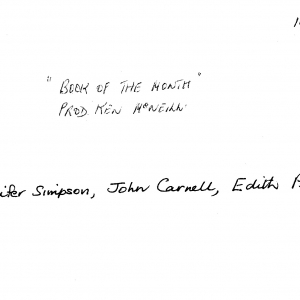 "BOOK OF THE MONTH"
PROD. KEN McNEILL.
Simpson, John Carnell, Edith